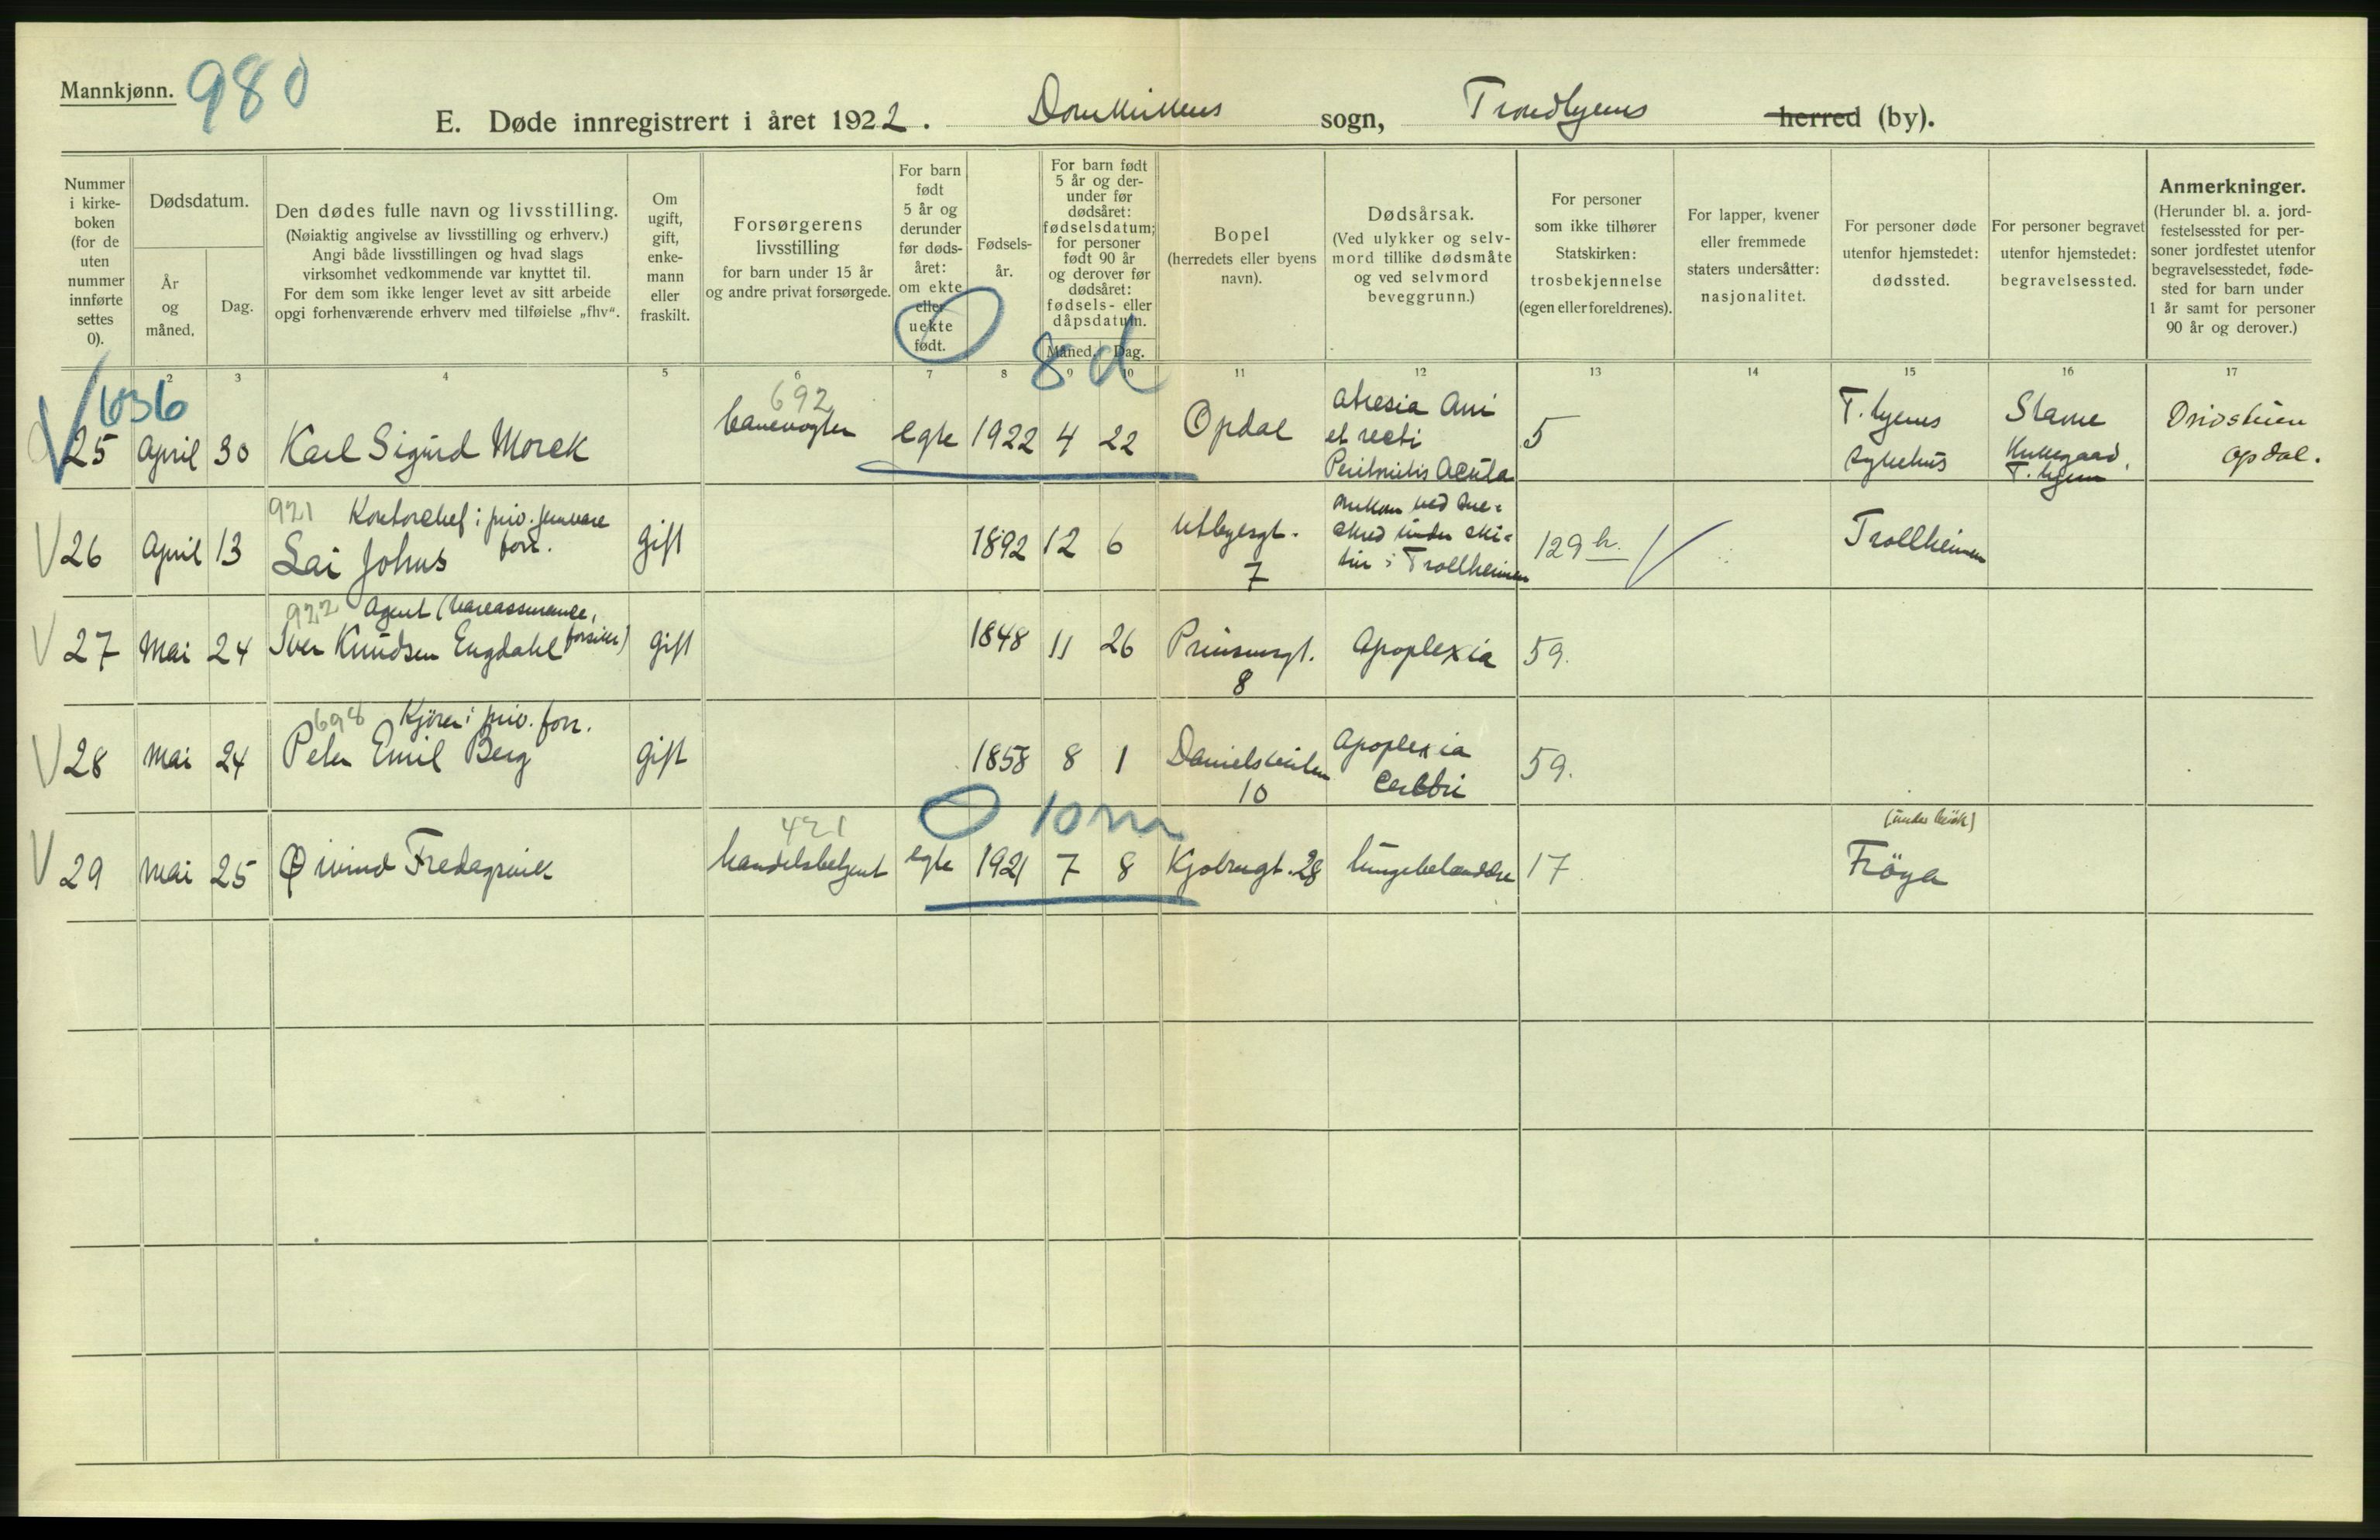 Mannkjønn. 980
E. Døde innregistrert i året 1922. Domkirkens sogn, Trondhjems herred (by).
Nummer i kirke-boken (for de uten nummer innførte settes 0).
Dødsdatum.
År og måned.
Dag.
Den dødes fulle navn og livsstilling.
(Nøiaktig angivelse av livsstilling og erhverv.)
Angi både livsstillingen og hvad slags
virksomhet vedkommende var knyttet til.
For dem som ikke lenger levet av sitt arbeide
opgi forhenværende erhverv med tilføielse „fhv“.
Om ugift, gift, enke-mann eller fraskilt.
Forsørgerens
livsstilling
for barn under 15 år
og andre privat forsørgede.
For barn født 5 år og derunder før døds-året: om ekte eller uekte født.
Fødsels-år.
For barn født 5 år og der-under før dødsåret: fødselsdatum; for personer født 90 år og derover før dødsåret: fødsels- eller dåpsdatum.
Måned. Dag.
Bopel
(herredets eller byens navn).
Dødsårsak.
(Ved ulykker og selv-mord tillike dødsmåte og ved selvmord beveggrunn.)
For personer som ikke tilhører Statskirken: trosbekjennelse (egen eller foreldrenes).
For lapper, kvener eller fremmede staters undersåtter: nasjonalitet.
For personer døde utenfor hjemstedet: dødssted.
For personer begravet utenfor hjemstedet: begravelsessted.
Anmerkninger.
(Herunder bl. a. jord-festelsessted for per-soner jordfestet utenfor begravelsesstedet, føde-sted for barn under 1 år samt for personer 90 år og derover.)
2 3 4 5 6 7 8 9 10 11 12 13 14 15 16 17
8d
1036
25 April 30 Karl Sigurd Morek 692 banevogter egte 1922 4 22 Opdal atresia Ani et recti Peritonitis Acuta 5 T.hjems sykehus Stavne Kirkegaard, T.hjem Drivstuen Opdal.
921 Kontorchef i priv. jernvare forr.
26 April 13 Lai Johns gift 1892 12 6 7 omkom ved sne-skred under ski-tur i Trollheimen 129 h. Trollheimen
922 Agent (vareassurance, forsikr)
27 Mai 24 Iver Knudsen Engdahl gift 1848 11 26 Prinsensgt. 8 Apoplexia 59.
698 Kjører i priv. forr.
28 Mai 24 Peter Emil Berg gift 1858 8 1 Danielsveiten 10 Apoplexia cerebri 59.
0 10 m
421 (under besøk)
29 Mai 25 Øivind Fredagsvik handelsbetjent egte 1921 7 8 28 lungebetændelse 17 Frøya